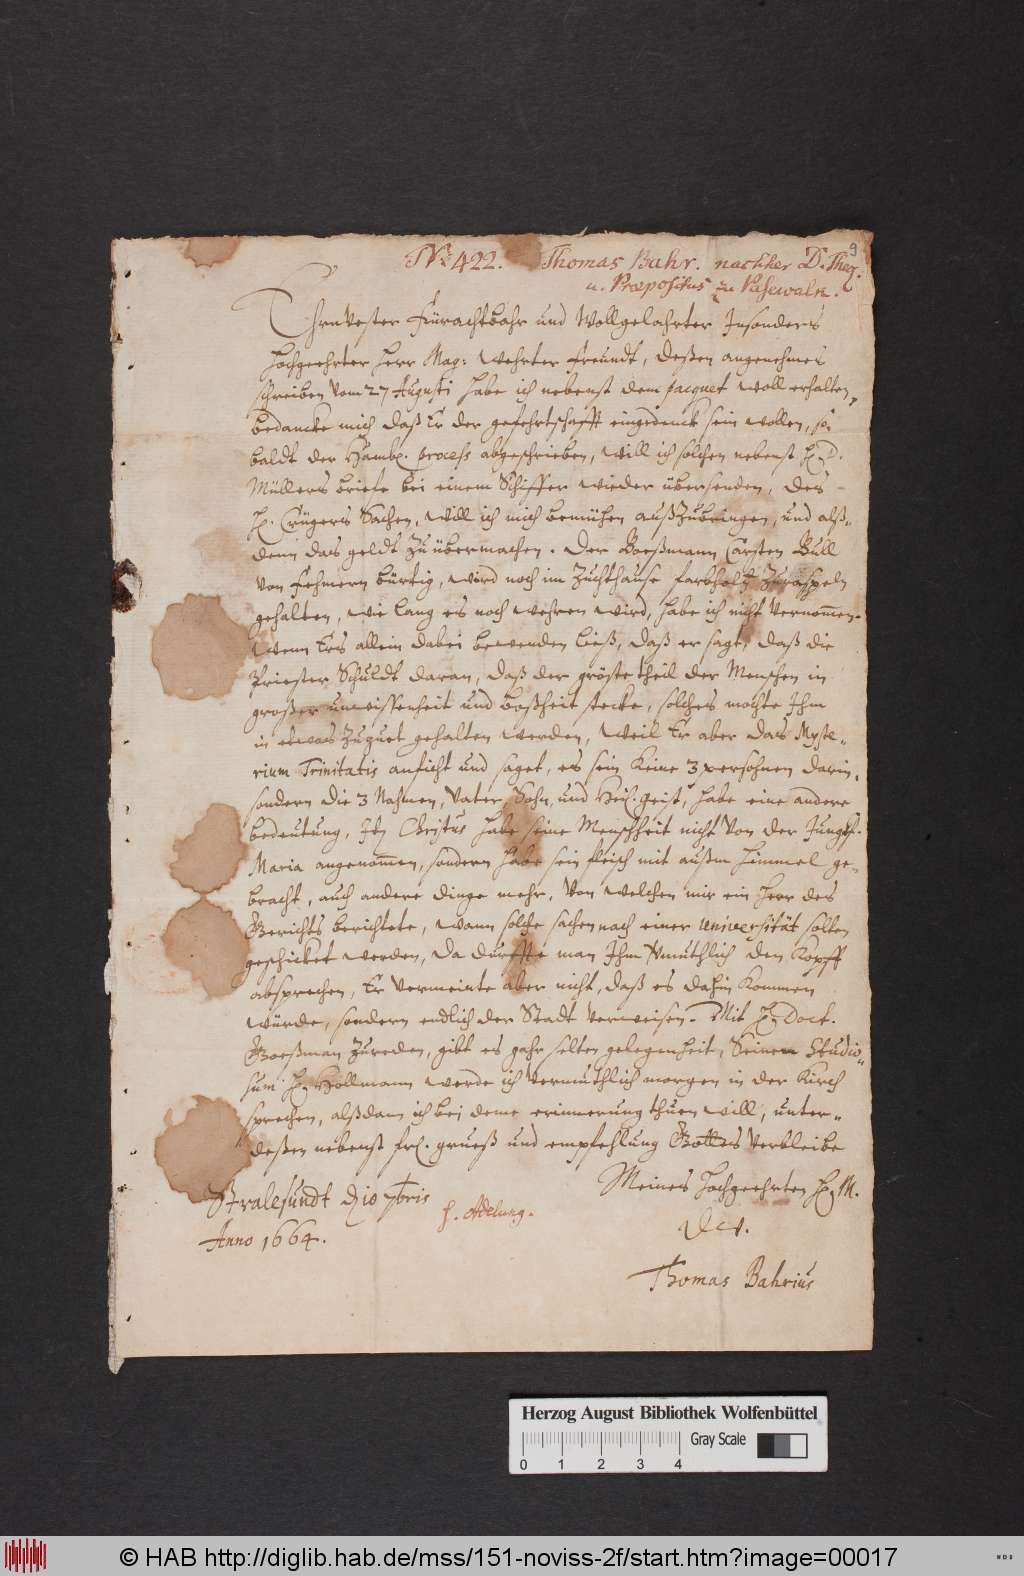 9
No. 422. Thomas Bahr. nachher D. Theol.
u. Præpositus zu Pasewalk.
Ehrnvester Fürachtbahr und Wollgelahrter Insonders
Hochgeehrter Herr Mag: wehrter freundt, deßen angenehmes
schreiben vom 27 Augusti habe ich nebenst dem pacquet woll erhalten,
bedancke mich daß Er der gefehrtschafft eingedenck sein wollen, so
baldt der Hamb. process abgeschrieben, will ich solchen nebenst H. D.
Müllers briefe bei einem Schiffer wieder übersenden, des
H. Crügers Sachen, will ich mich bemühen außzubringen, und alß-
denn das geldt zu übermachen. Der Boeßmann Carsten Bull
von Fehmern bürtig, wird noch im Zuchthause farbholtz zuraspeln
gehalten, wie lang es noch wehren wird, habe ich nicht vernommen.
Wenn Ers allein dabei bewenden ließ, daß er sagt, daß die
Priester Schuldt daran, daß der gröste theil der Menschen in
großer unwissenheit und boßheit stecke, solches mochte Ihm
in etwas zu gut gehalten werden, weil Er aber das Myste-
rium Trinitatis anficht und saget, es sein keine 3 persohnen darin,
sondern die 3 Nahmen, Vater, Sohn, und Heil. geist, habe eine andere
bedeutung, Christus habe seine Menschheit nicht von der Jungfr.
Maria angenommen, sondern habe sein fleisch mit außm Himmel ge-
bracht, auch andere dinge mehr, von welchen mir ein Herr des
Gerichts berichtete, wann solche sachen nach einer universität solten
geschicket werden, da durffte man Ihm vmuthlich den Kopff
absprechen, Er vermeinte aber nicht, daß es dahin kommen
würde, sondern endlich der Stadt verweisen. Mit H. Doct.
Goeßman zureden, gibt es gahr selten gelegenheit, Seinem Studio-
sum H. Hollmann werde ich vermuthlich morgen in der Kirch
sprechen, alßdann ich bei deme erinnerung thuen will, unter-
deßen nebenst frl. grueß und empfehlung Gottes verbleibe
Meines Hochgeehrten H. M.
Stralesundt d. 10 7bris
Anno 1664.
H. Adelung.
Thomas Bahrius
Herzog August Bibliothek Wolfenbüttel
Gray Scale
0 1 2 3 4
© HAB http://diglib.hab.de/mss/151-noviss-2f/start.htm?image=00017